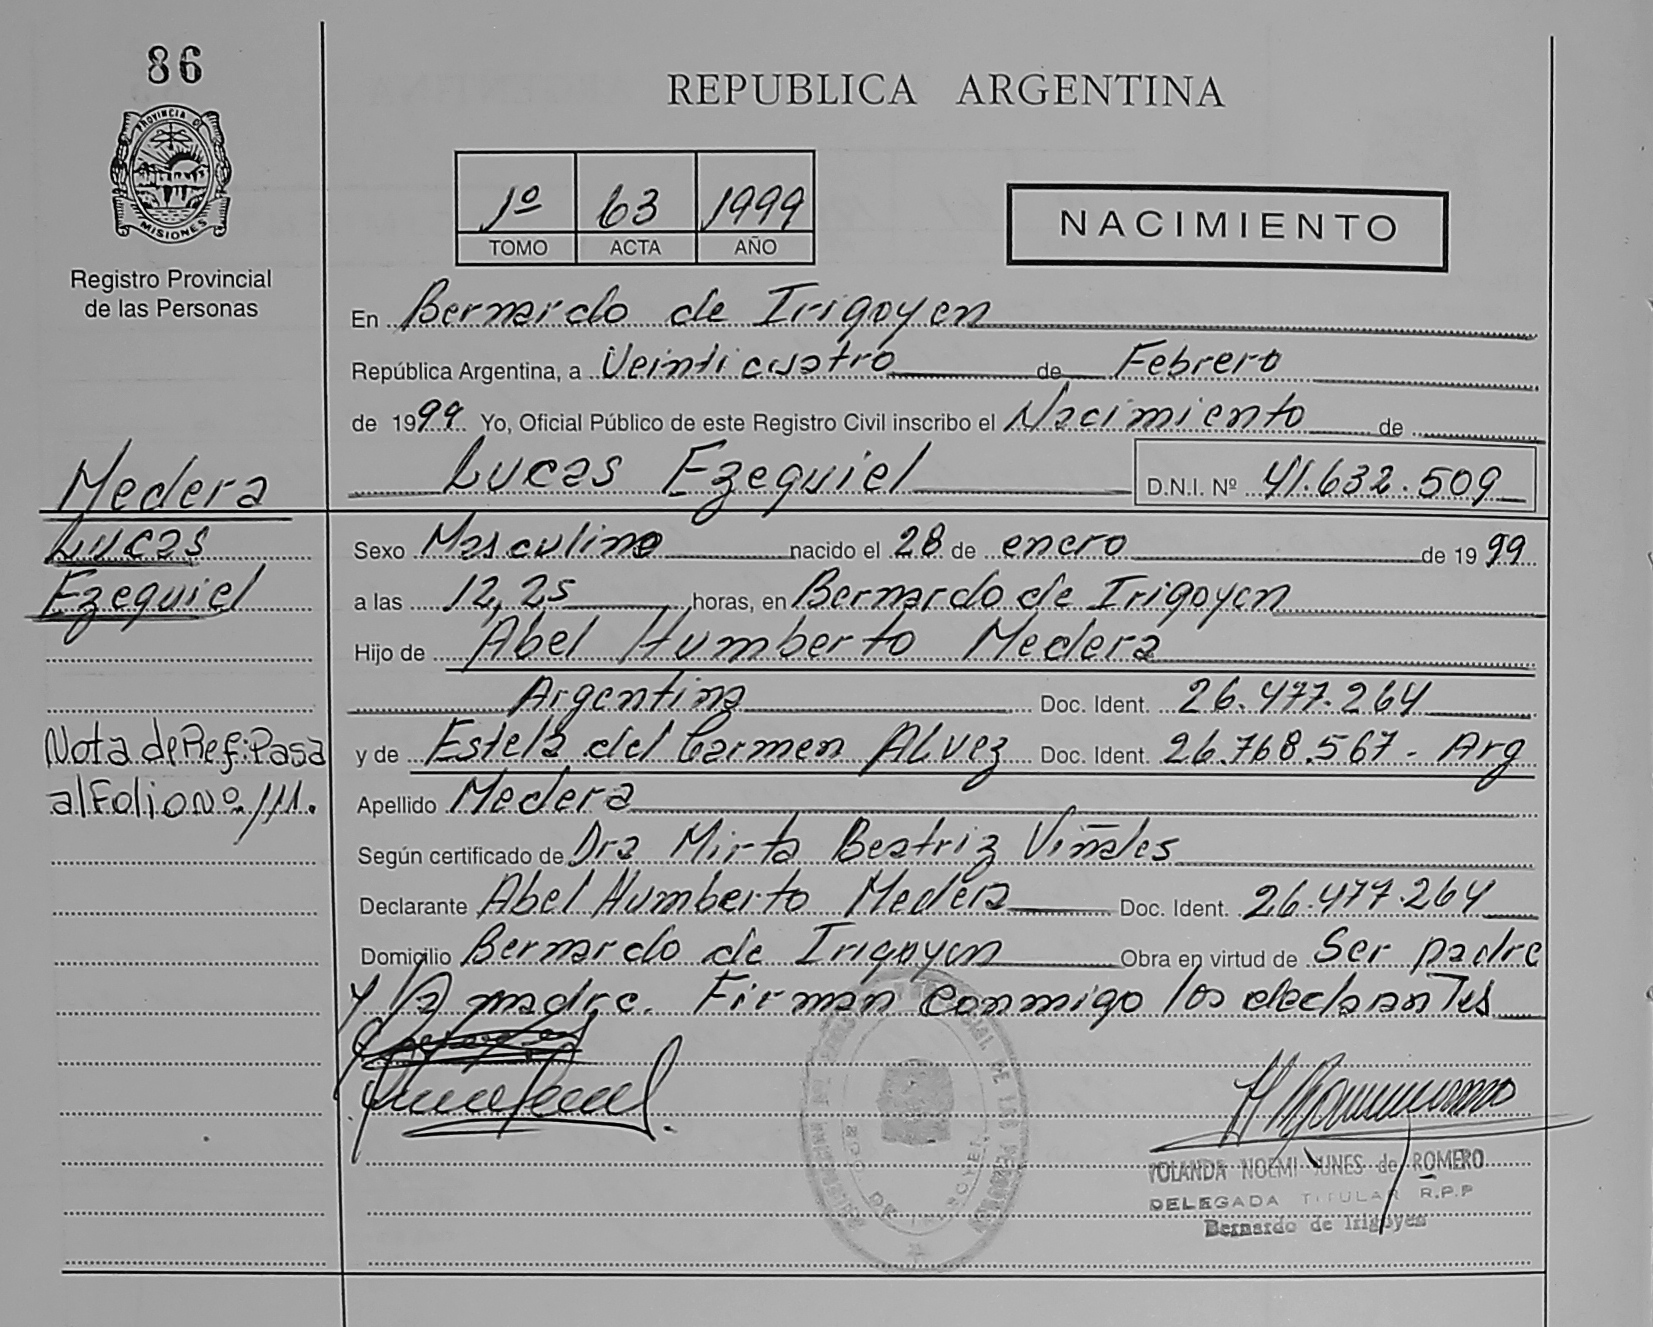 86
PROVINCIA DE
MISIONES
Registro Provincial
de las Personas
REPUBLICA ARGENTINA
1º 63 1999
TOMO ACTA AÑO
NACIMIENTO
En Bernardo de Irigoyen
República Argentina, a Veinticuatro de Febrero
de 1999. Yo, Oficial Público de este Registro Civil inscribo el Nacimiento de
Lucas Ezequiel D.N.I. Nº 41.632.509
Medera
Lucas
Ezequiel
Sexo Masculino nacido el 28 de enero de 1999
a las 12,25 horas, en Bernardo de Irigoyen
Hijo de Abel Humberto Medera
Argentina Doc. Ident. 26.477.264
Nota de Ref: Pasa
al Folio nº 111.
y de Estela del Carmen ALvez Doc. Ident. 26.768.567 - Arg
Apellido Medera
Según certificado de Dra Mirta Beatriz Viñales
Declarante Abel Humberto Medera Doc. Ident. 26.477.264
Domicilio Bernardo de Irigoyen Obra en virtud de Ser padre
y la madre. Firman conmigo los declarantes
YOLANDA NOEMI YUNES de ROMERO
DELEGADA TITULAR R.P.P
Bernardo de Irigoyen